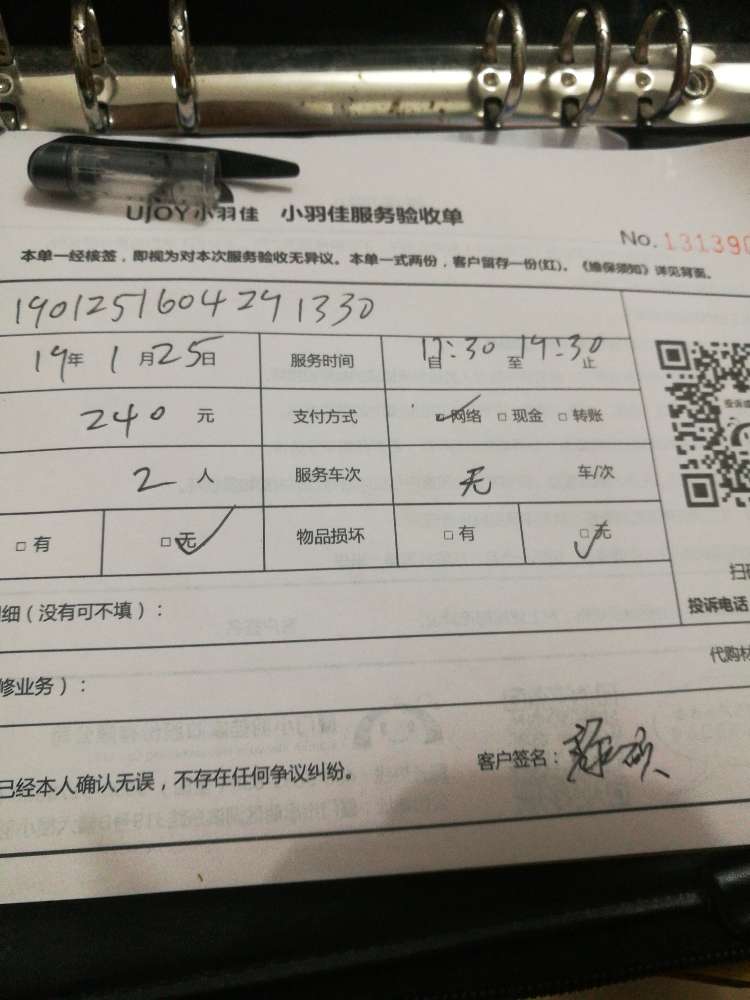 UJOY小羽佳 小羽佳服务验收单
No.131390
本单一经核签，即视为对本次服务验收无异议。本单一式两份，客户留存一份(红)。《维保须知》详见背面。
1901251604291330
19年1月25日 服务时间 自17:30至19:30止
240元 支付方式 ☑网络 □现金 □转账
2人 服务车次 无 车/次
□有 ☑无 物品损坏 □有 ☑无
细（没有可不填）：
投诉电话
修业务）：
代购材
已经本人确认无误，不存在任何争议纠纷。 客户签名：